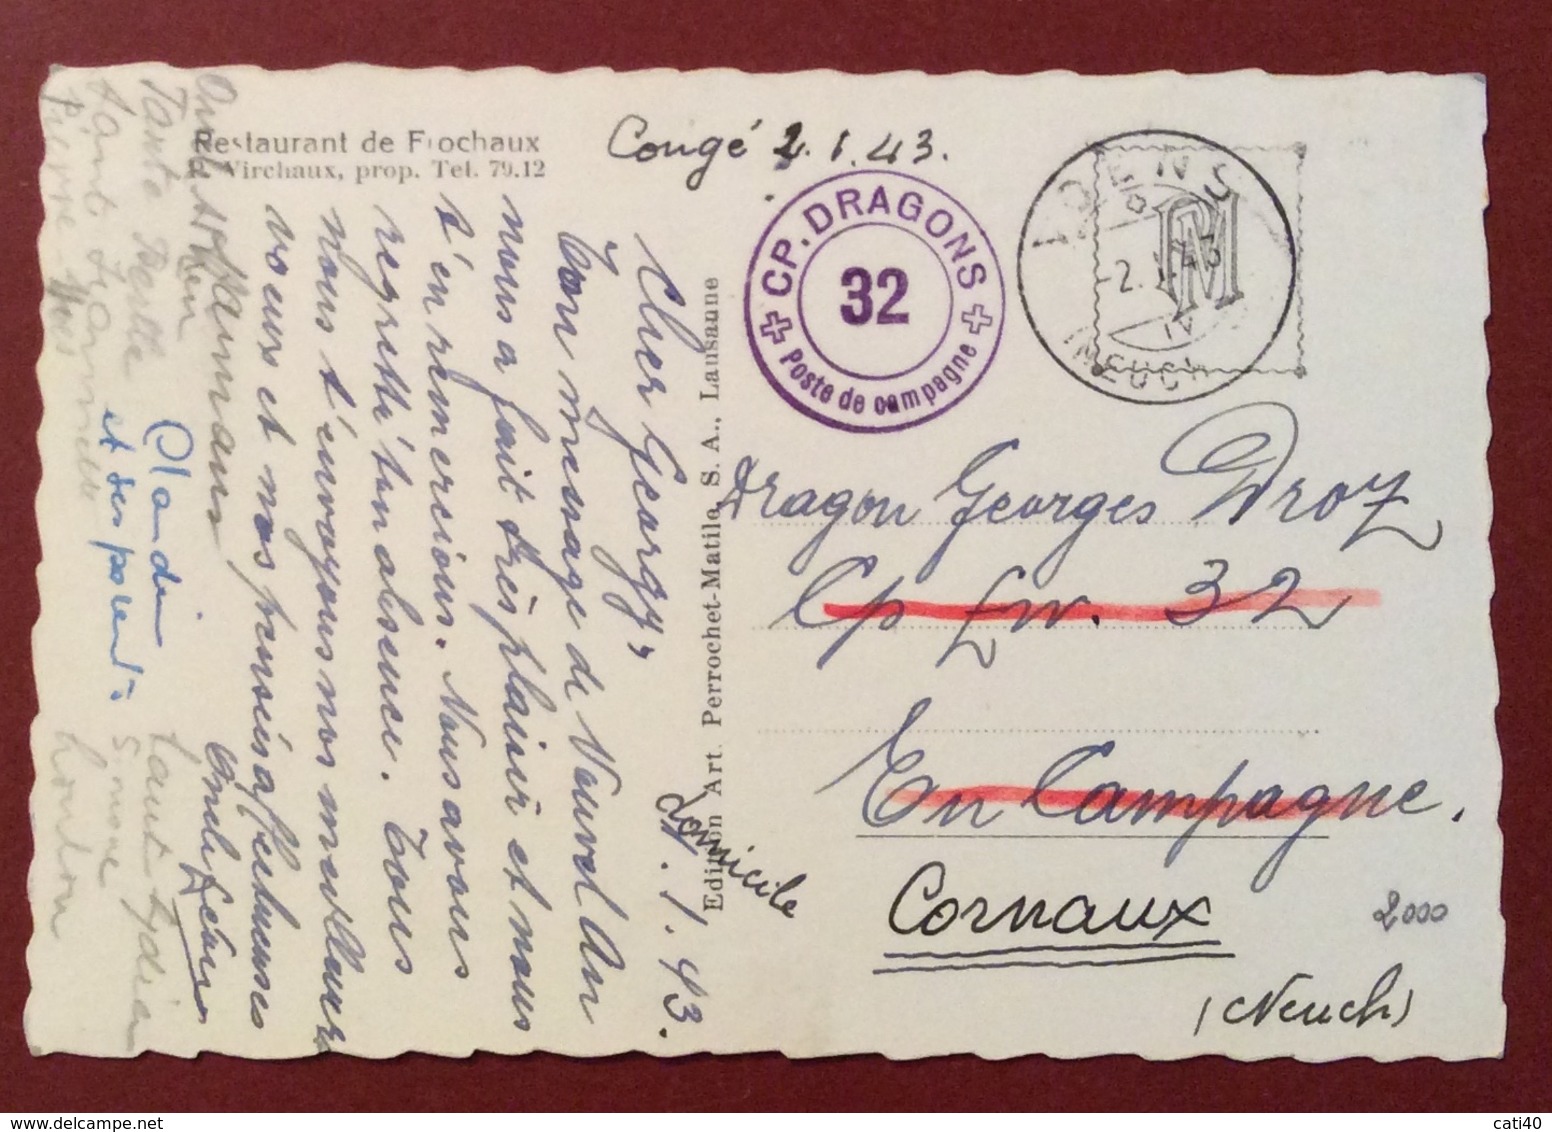 Restaurant de Frochaux
R. Virchaux, prop. Tel. 79.12
Congé 2.1.43.
CP. DRAGONS
32
Poste de campagne
-2.1.43
IV
(NEUCH
PM
Dragon Georges Droz
Cp fw. 32
En Campagne.
Cornaux
(Neuch)
2000
domicile
Edition Art. Perrochet-Matile, S. A., Lausanne
1.43.
Cher Georgy,
Ton message de Nouvel An
nous a fait très plaisir et nous
t'en remercions. Nous avons
regretté ton absence. Tous
nous t'envoyons nos meilleurs
voeux et nos pensées affectueuses
Claudi
et ses parents
Tante Berthe
Simone
Pierre-Yves